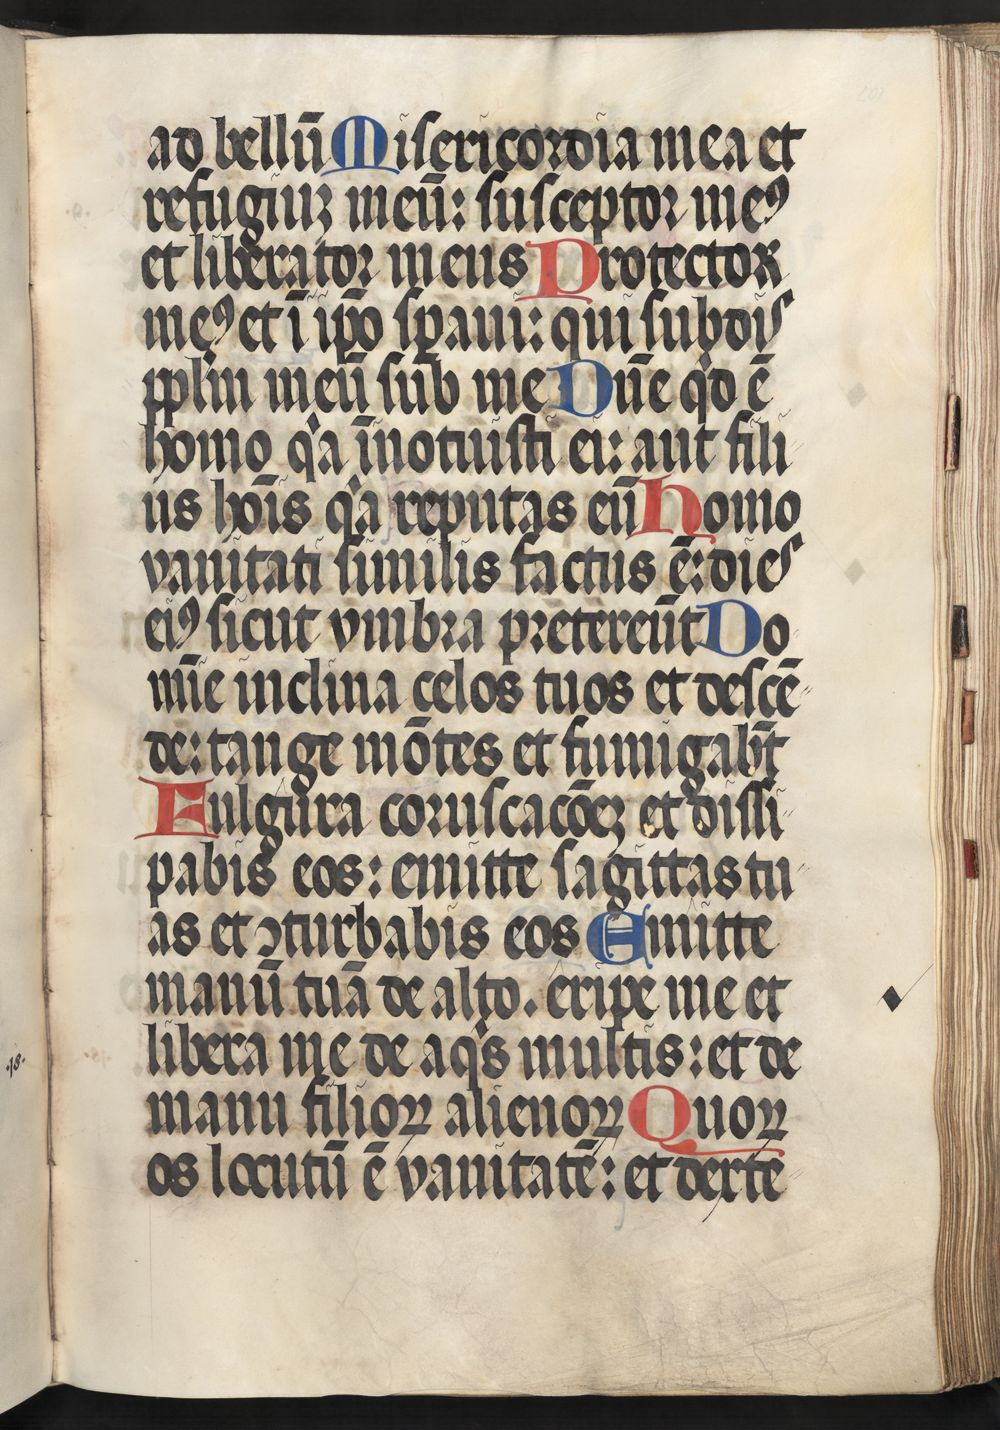 ad bellū Misericordia mea et
refugiuꝫ meū: susceptor meꝰ
et liberator meus Protector
meꝰ et ī ipō sꝑaui: qui subdis
pplm̄ meū sub me Dn̄e qͥd ē
homo qͥa īnotuisti ei: aut fili
us hoīs qͥa reputas eū Homo
vanitati similis factus ē: dies
eiꝰ sicut vmbra pretereūt Do
mīe inclina celos tuos et descē
de: tange mōtes et fumigabūt
Fulgura coruscacōeꝫ et dissi
pabis eos: emitte sagittas tu
as et ꝯturbabis eos Emitte
manū tuā de alto. eripe me et
libera me de aqͥs multis: et de
manu filioꝝ alienoꝝ Quoꝝ
os locutū ē vanitatē: et dexte
.18.